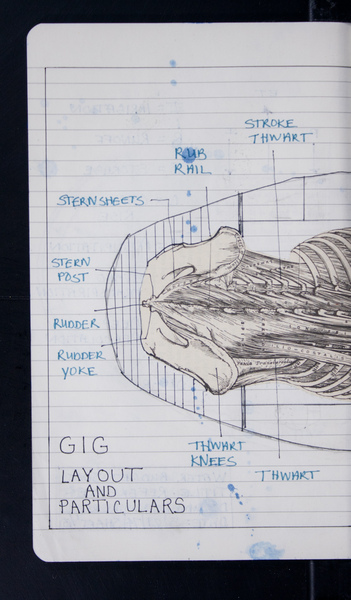 STROKE
THWART
RUB
RAIL
STERNSHEETS
STERN
POST
RUDDER
RUDDER
YOKE
THWART
KNEES
THWART
GIG
LAYOUT
AND
PARTICULARS